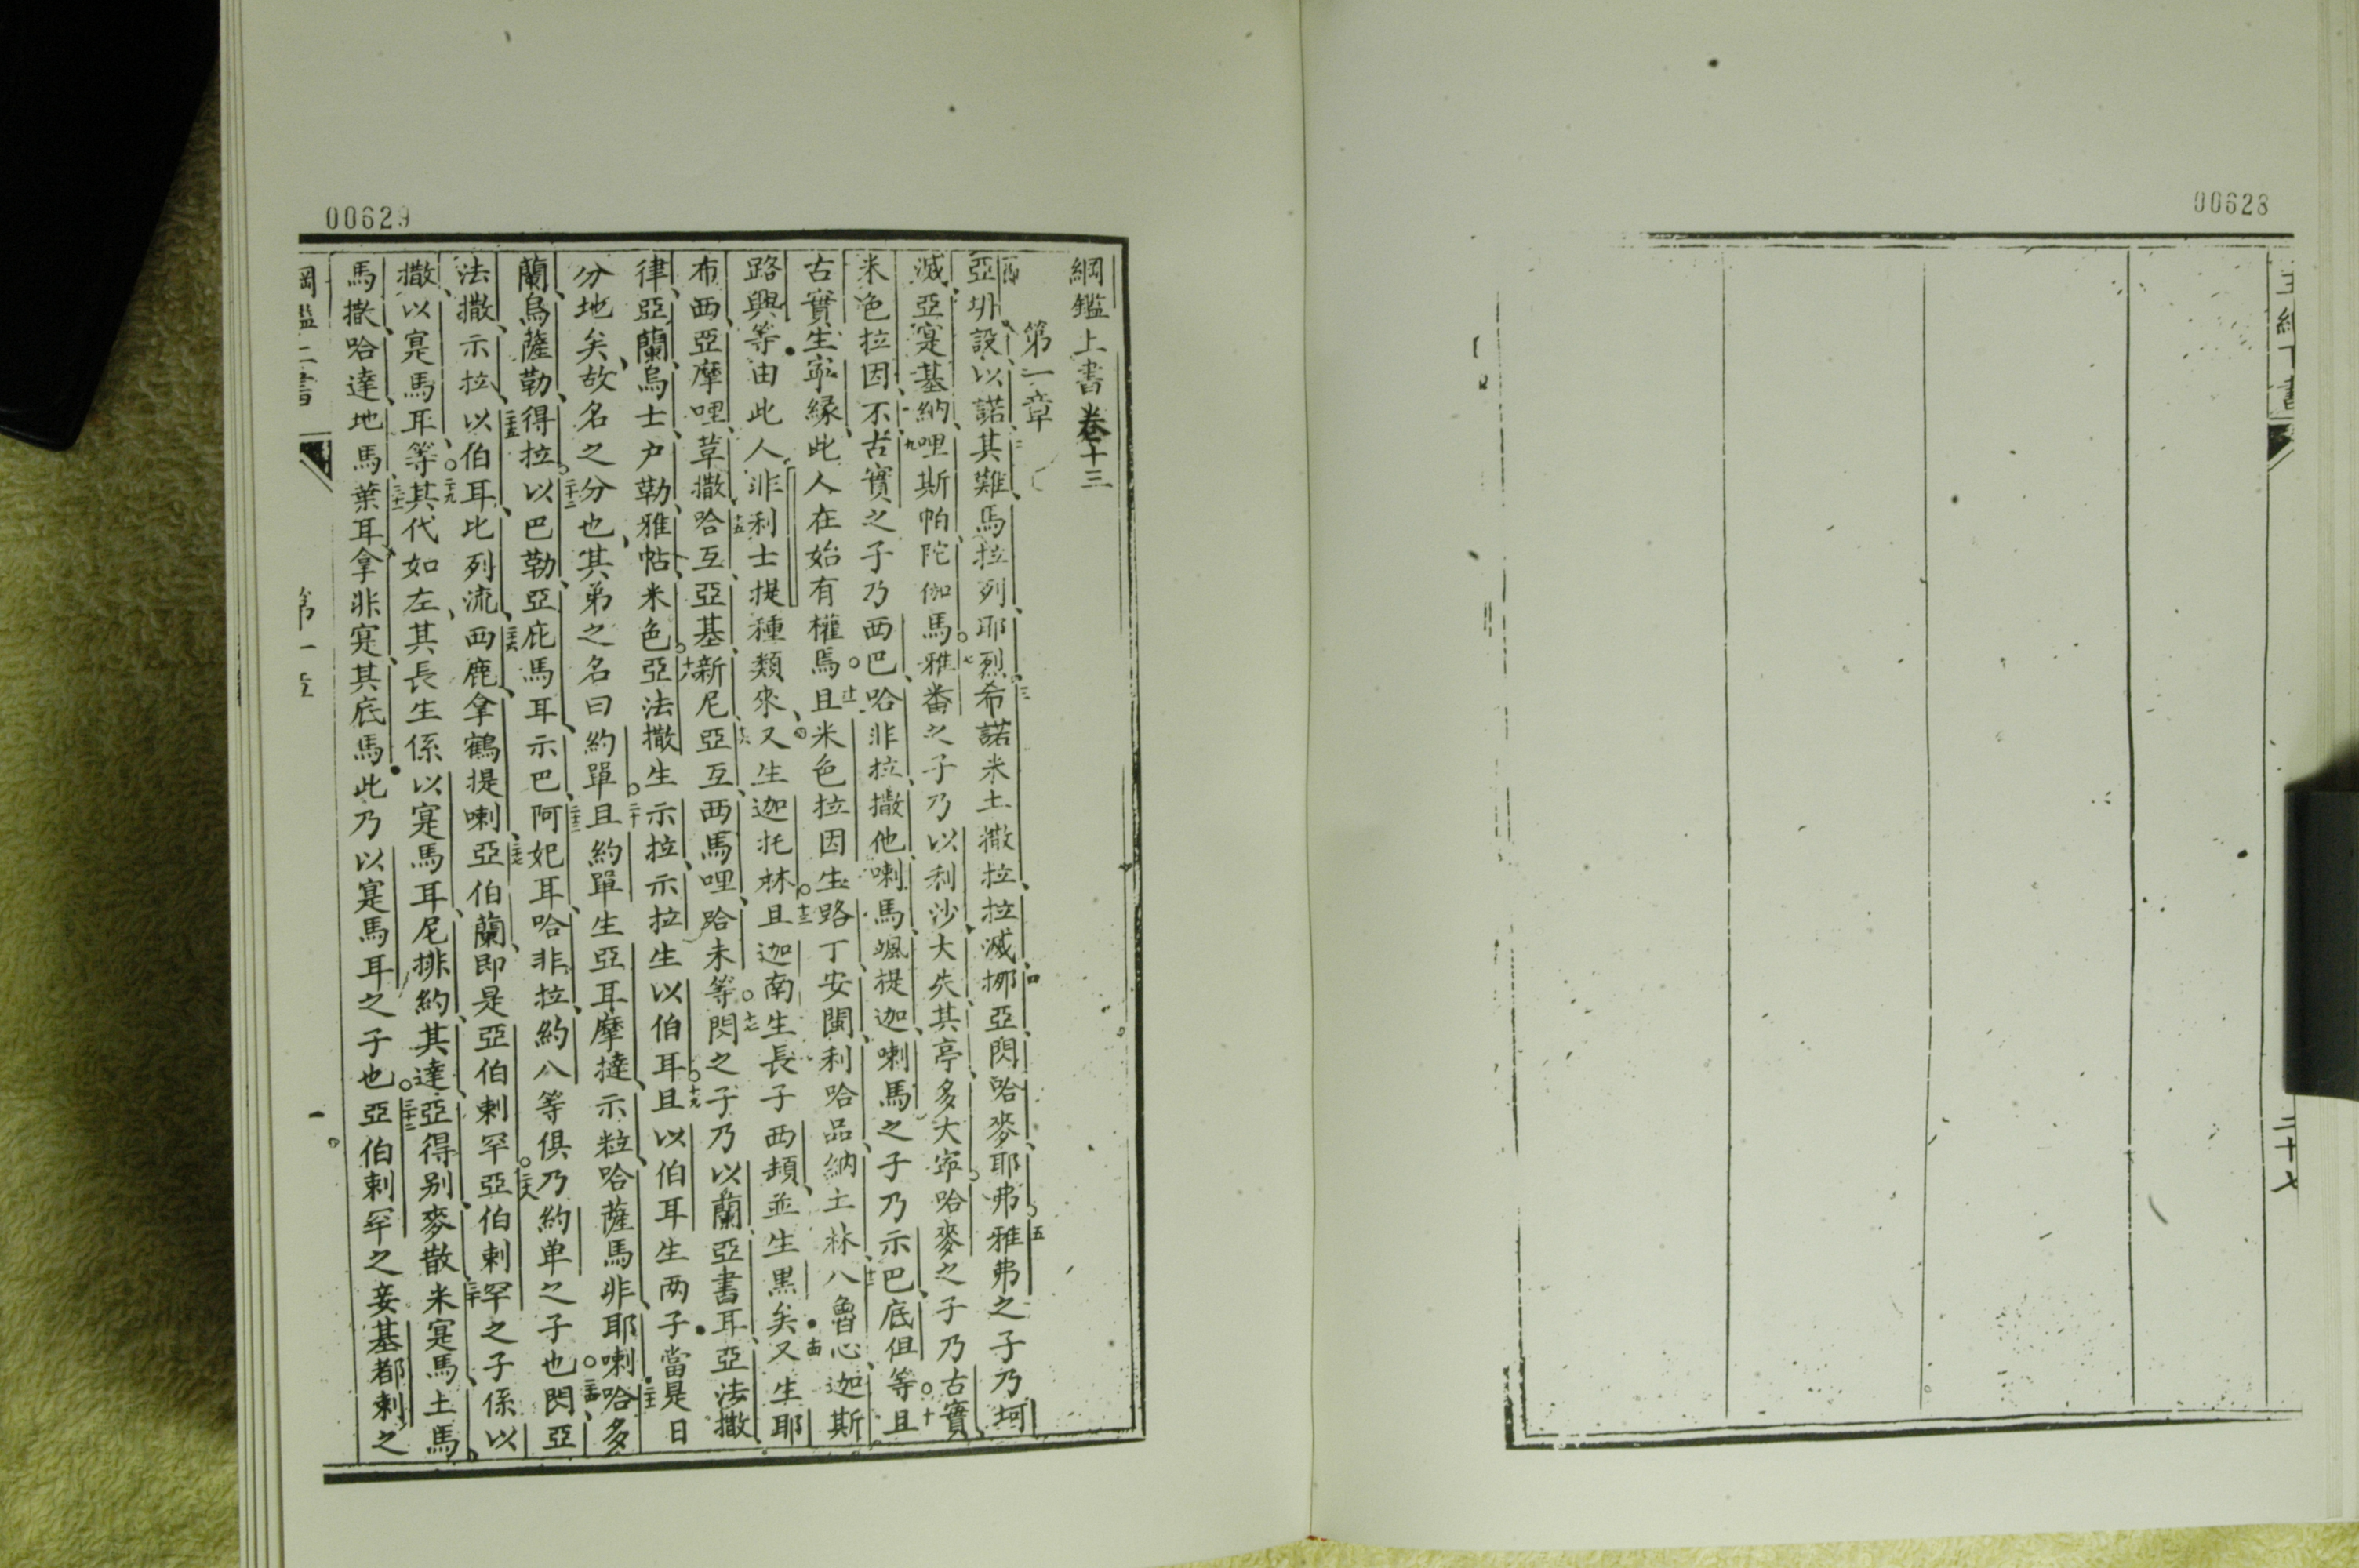 00628
二十七
00629
綱鑑上書卷十三
第一章
亞坿設以諾其難馬拉列耶烈希諾米土撒拉拉滅挪亞閃哈麥耶弗雅弗之子乃坷
滅亞寔基納哩斯帕陀伽馬雅番之子乃以利沙大失其亭多大寍哈麥之子乃古實
米色拉因不古實之子乃西巴哈非拉撒他喇馬颯提迦喇馬之子乃示巴底但等且
古實生寍緣此人在始有權焉且米色拉因生路丁安閩利哈品納土林八魯心迦斯
路興等由此人非利士提種類來又生迦托林且迦南生長子西頳並生黑矣又生耶
布西亞摩哩革撒哈互亞基新尼亞互西馬哩哈未等閃之子乃以蘭亞書耳亞法撒
律亞蘭烏士户勒雅帖米色亞法撒生示拉示拉生以伯耳且以伯耳生两子當是日
分地矣故名之分也其弟之名曰約單且約單生亞耳摩撻示粒哈薩馬非耶喇哈多
蘭烏薩勒得拉以巴勒亞庇馬耳示巴阿妃耳哈非拉約八等俱乃約单之子也閃亞
法撒示拉以伯耳比列流西鹿拿鶴提喇亞伯蘭即是亞伯剌罕亞伯剌罕之子係以
撒以寔馬耳等其代如左其長生係以寔馬耳尼排約其達亞得别麥散米寔馬土馬
馬撒哈達地馬葉耳拿非寔其底馬此乃以寔馬耳之子也亞伯剌罕之妾基都剌之